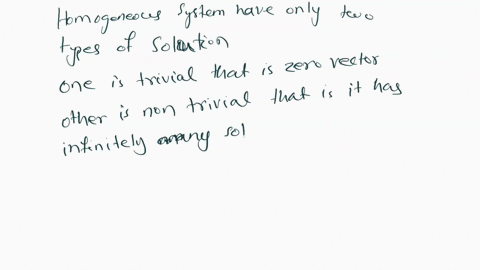 Homogeneous system have only two
types of Solution
one is trivial that is zero vector
other is non trivial that is it has
infinitely many sol